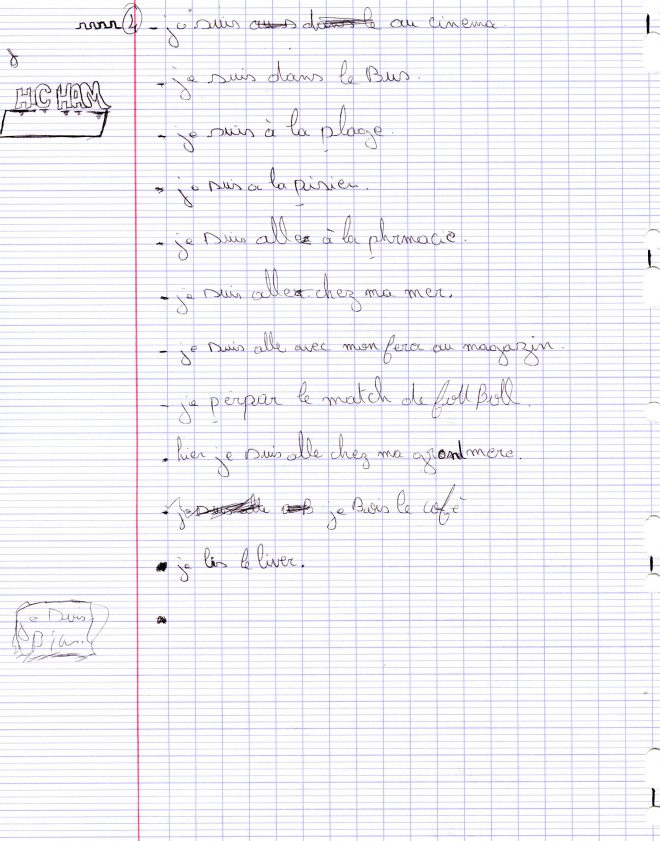 2 - je suis au cinema
HICHAM
- je suis dans le Bus.
- je suis à la plage.
- je suis a la pisien.
- je suis alle à la phrmacie.
- je suis alle chez ma mer.
- je suis alle avec mon fera au magazin.
- je perpar le match de foll Boll.
. hier je suis alle chez ma grandmere.
- je Buis le café
- je lis le liver.
je suis
Bian.